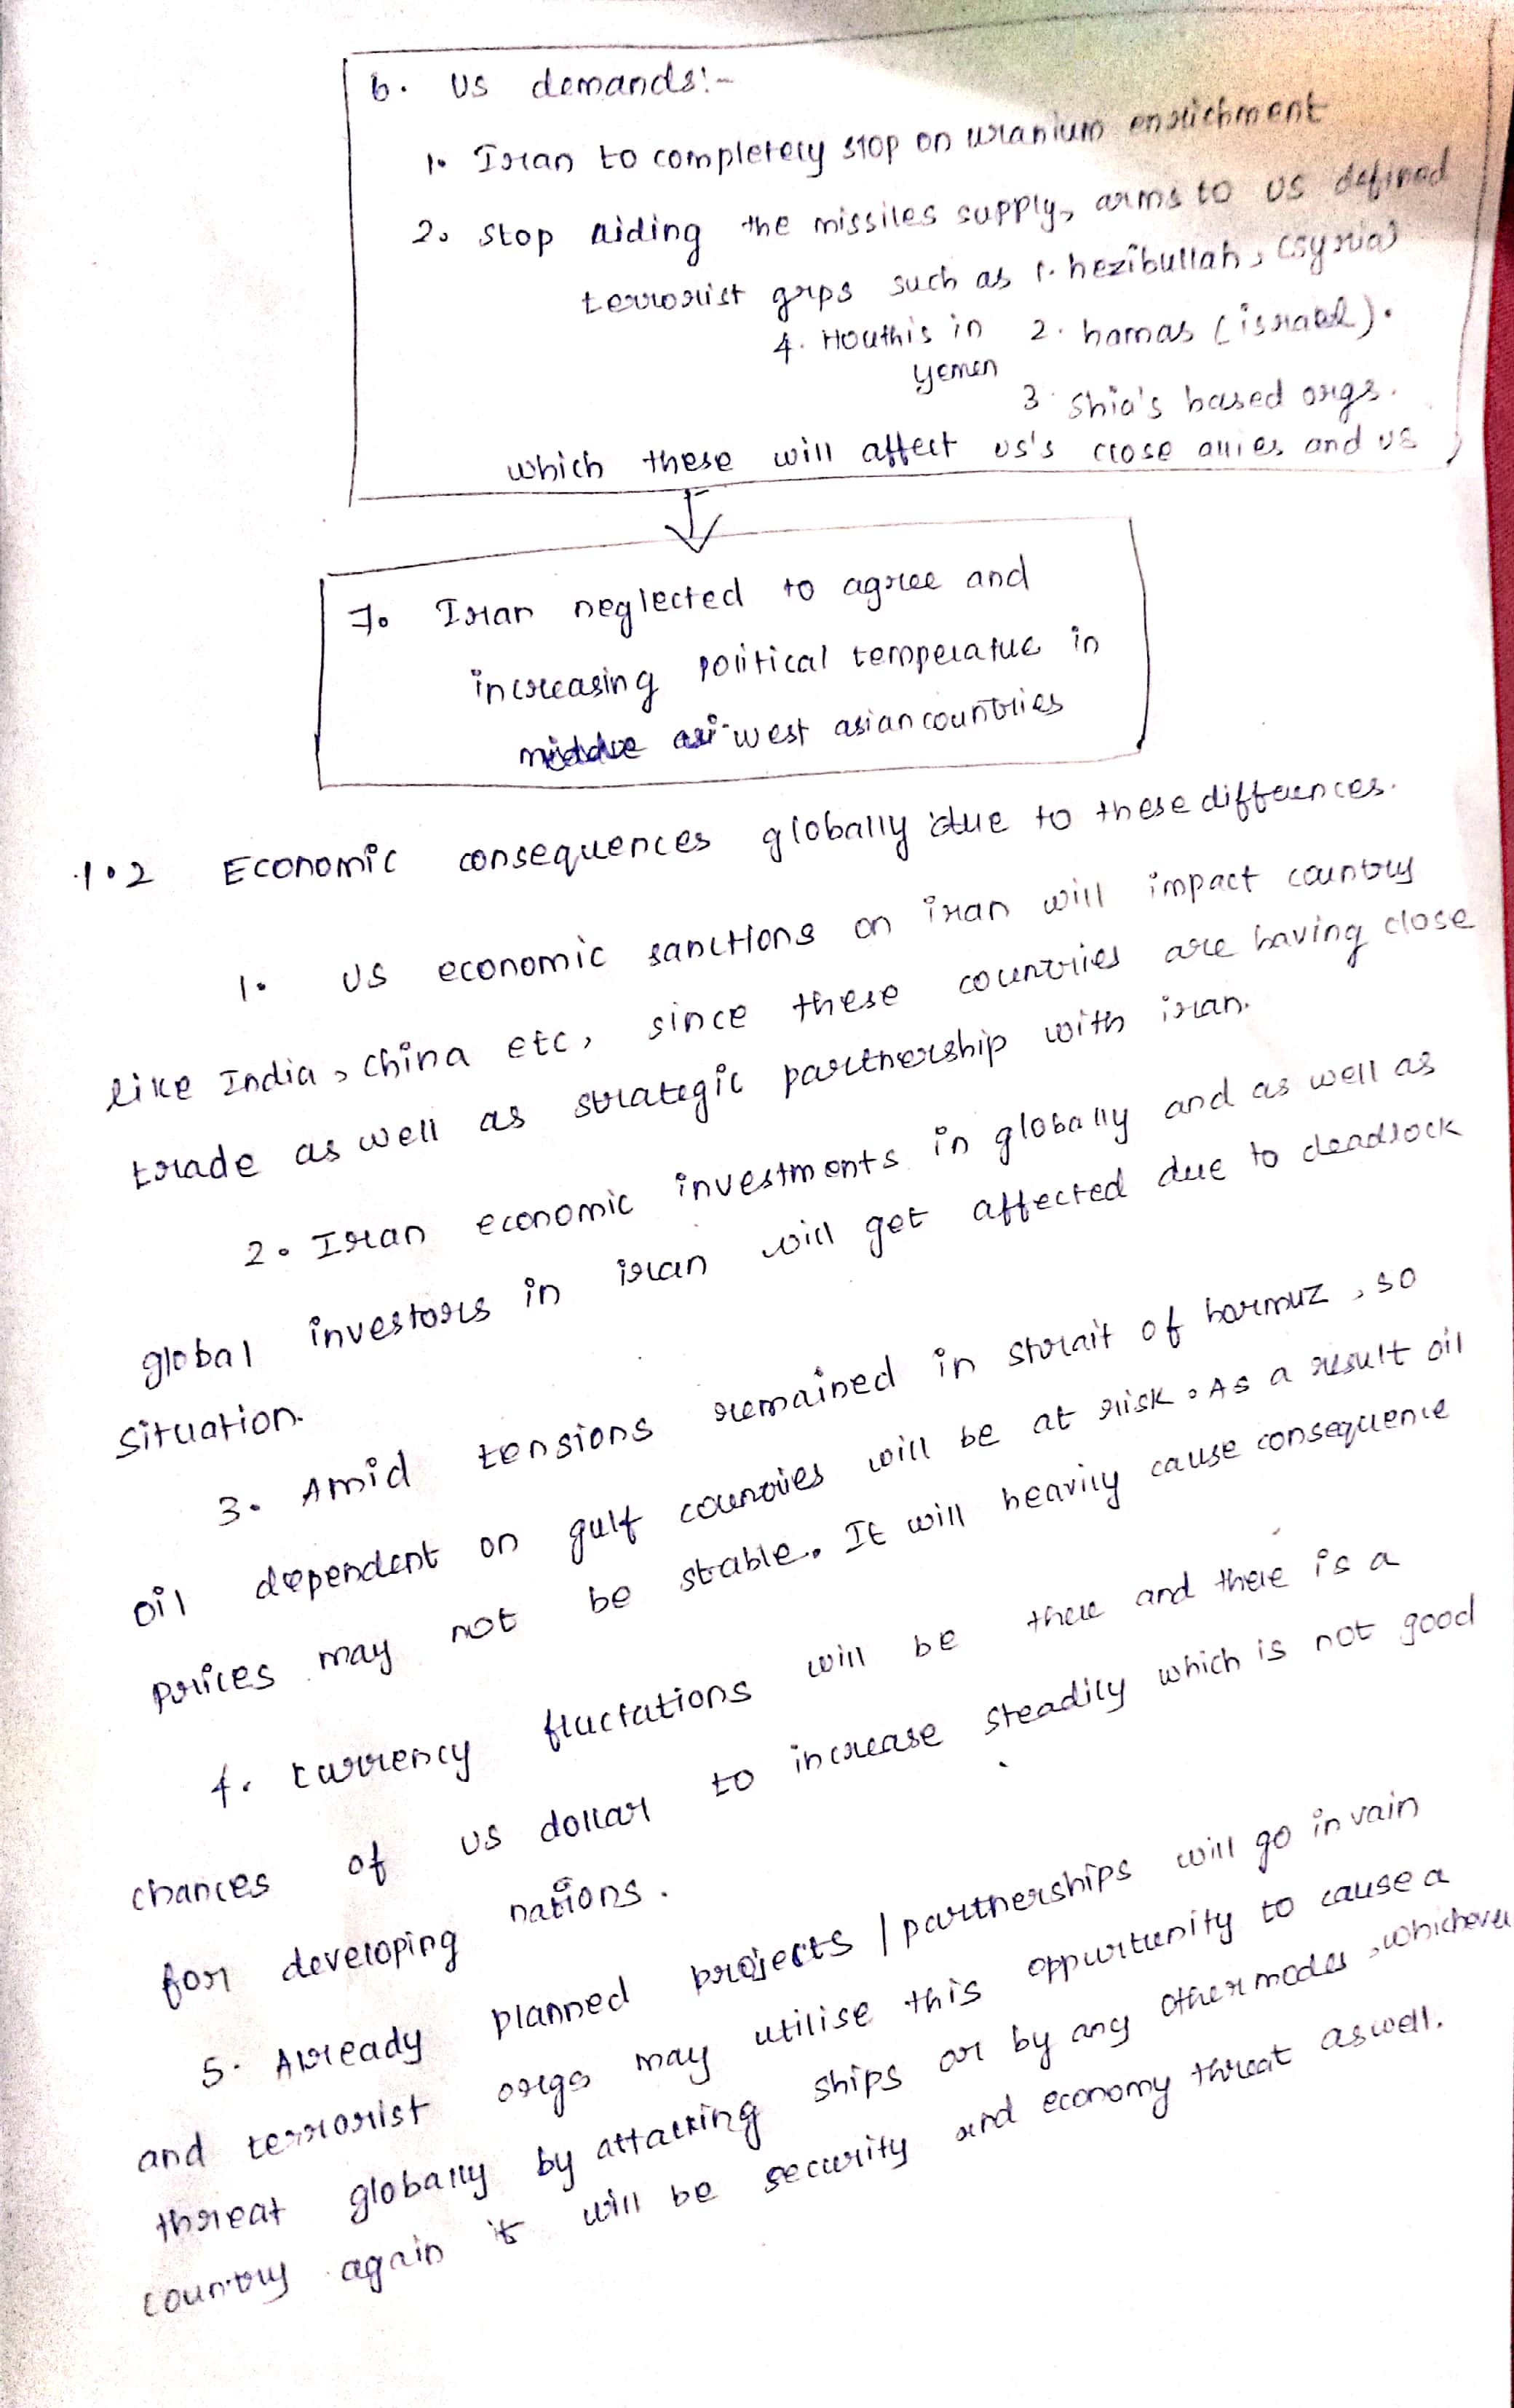 6. US demands:-
1. Iran to completely stop on uranium enrichment
2. Stop aiding the missiles supply, arms to US defined
terrorist grps such as 1. hezibullah, (syria)
4. Houthis in 2. hamas (israel).
yemen
3. Shia's based orgs.
which these will affect us's close allies and us
7. Iran neglected to agree and
increasing political temperatue in
west asian countries
1.2 Economic consequences globally due to these differences.
1. US economic sanctions on iran will impact country
like India, China etc, since these countries are having close
trade as well as strategic partnership with iran.
2. Iran economic investments in globally and as well as
global investors in iran will get affected due to deadlock
situation.
3. Amid tensions remained in strait of harmuz, so
oil dependent on gulf countries will be at risk. As a result oil
prices may not be stable. It will heavily cause consequence
4. currency fluctations will be there and there is a
chances of us dollar to increase steadily which is not good
for developing nations.
5. Already planned projects / partnerships will go in vain
and terrorist orgs may utilise this oppurtunity to cause a
threat globally by attacking ships or by any other modes, whichever
country again it will be security and economy threat as well.